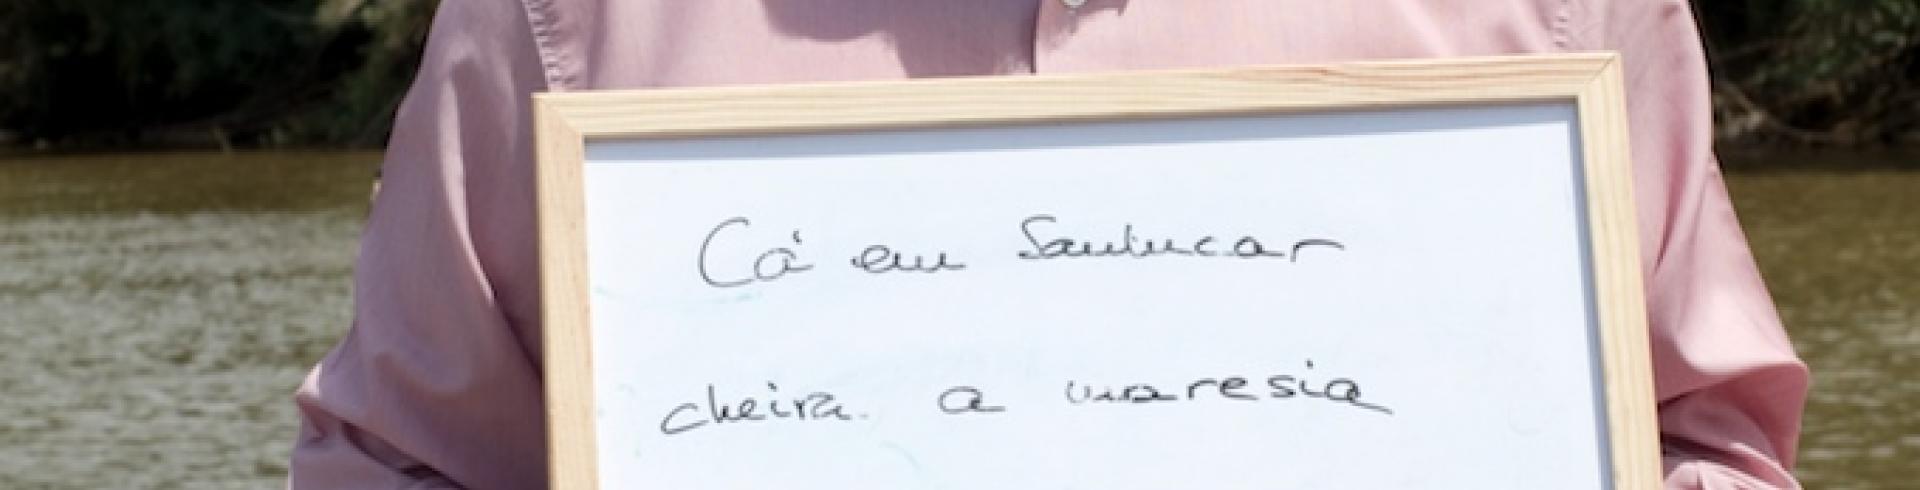 Cá em Sanlucar
cheira a maresia